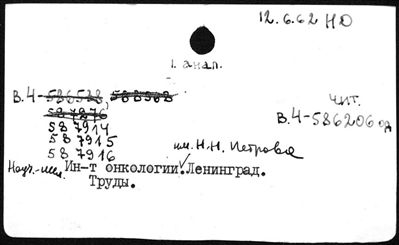 12.6.62 НО
1. анал.
В.4-586528, 588568
чит.
597276
В.4-586206 од
587914
587915
587916
им. Н.Н. Петрова
Науч.-иссл. Ин-т онкологии. Ленинград.
Труды.